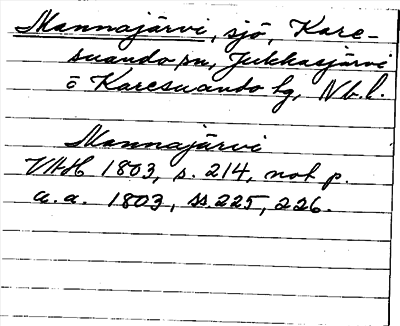 Mannajärvi, sjö, Kare-
suando sn, Jukkasjärvi
o Karesuando tg, Nb. l.
Mannajärvi
VAH 1803, s. 214, not p.
a.a. 1803, ss. 225, 226.